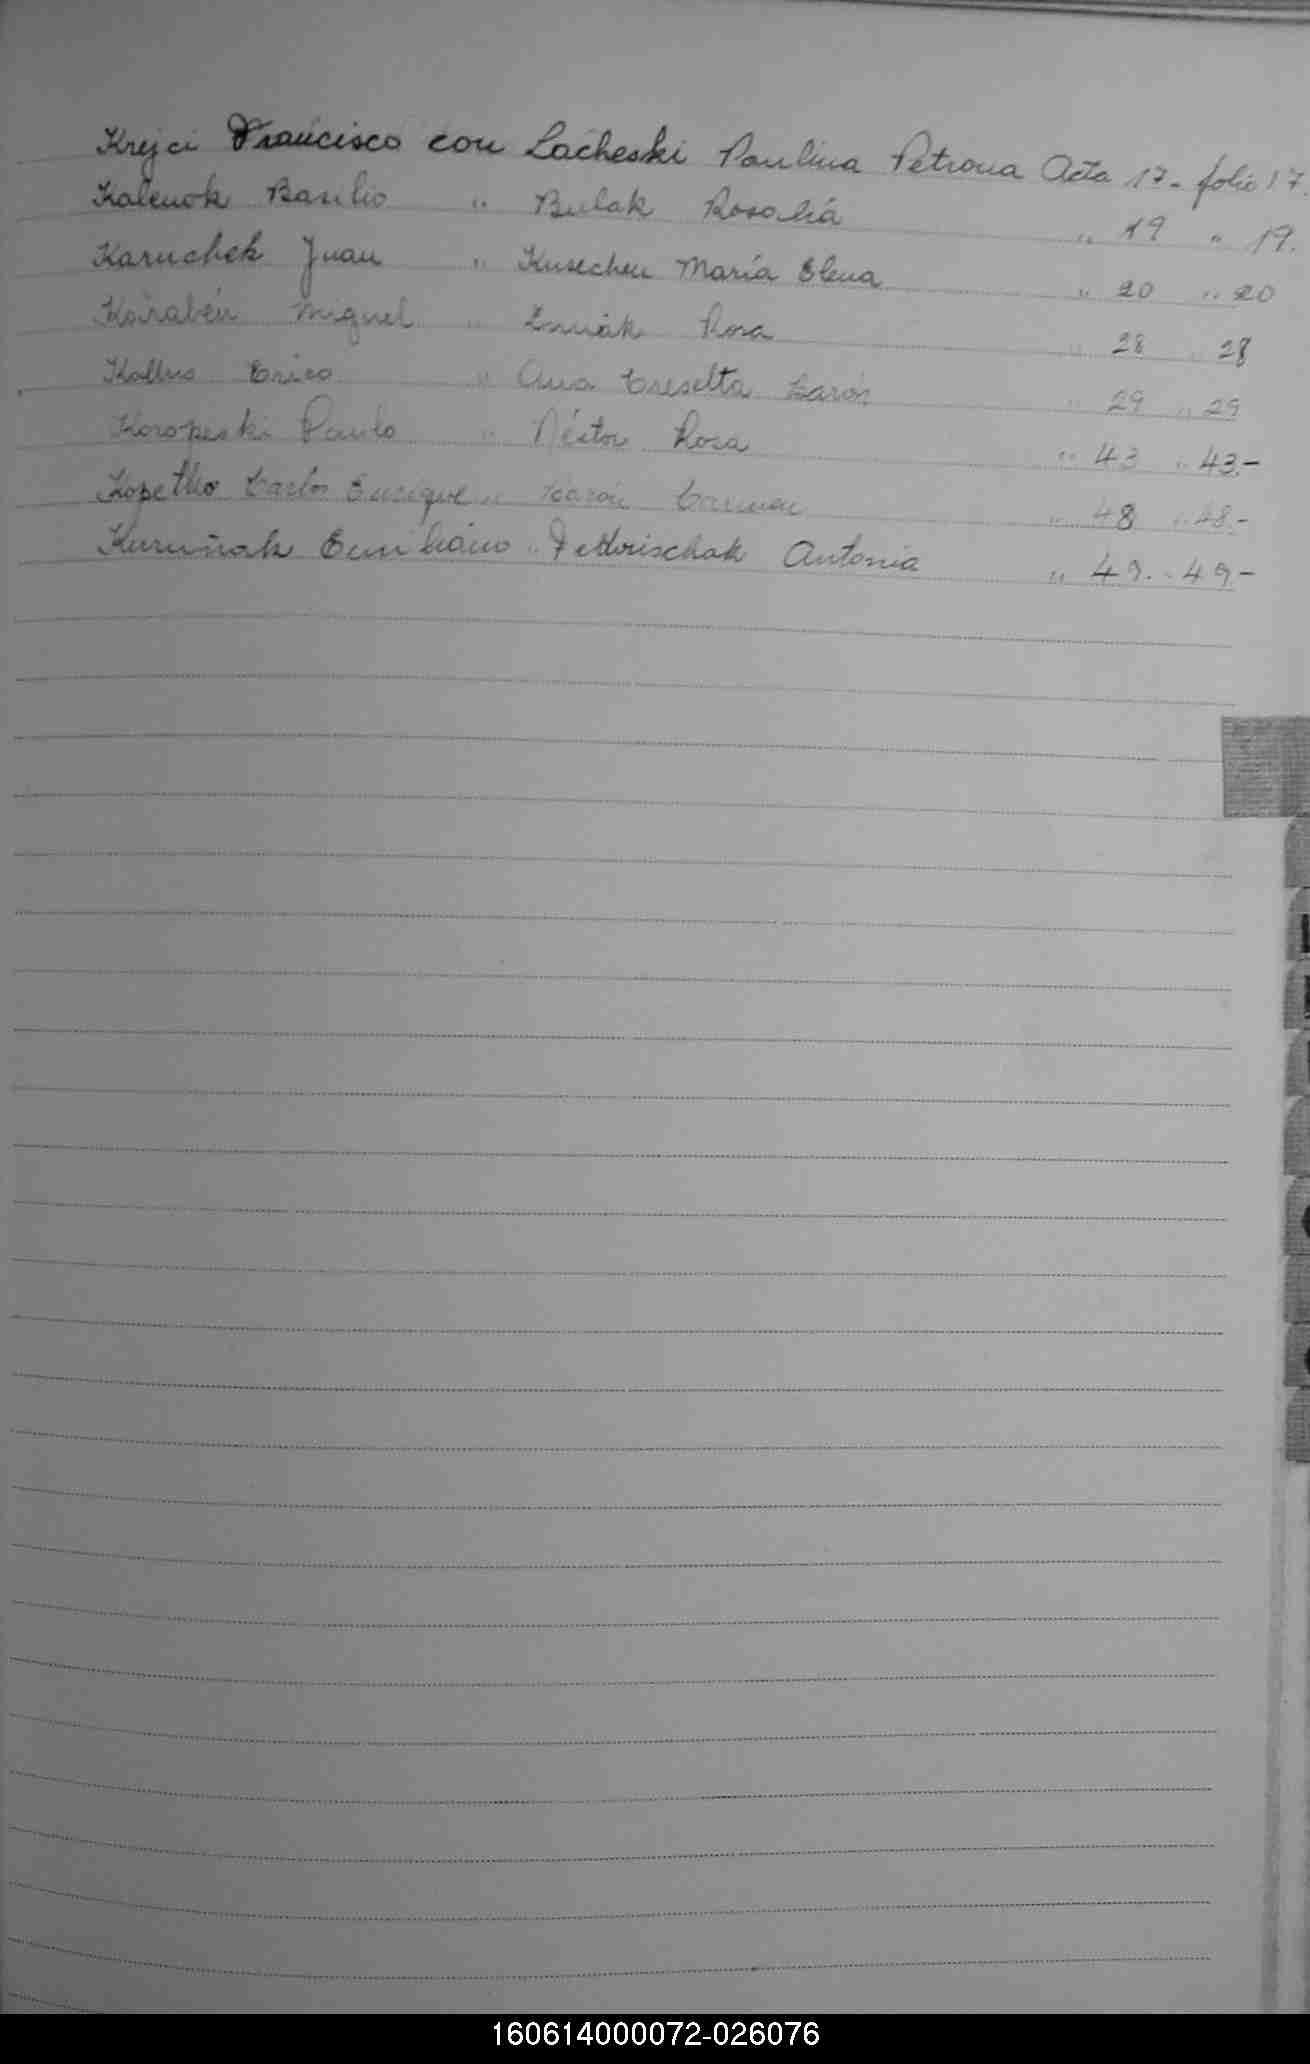 Krejci Francisco con Lacheski Paulina Petrona Acta 17- folio 17.
Kalenok Basilio " Bulak Rosalía " 19 " 19.
Karuchek Juan " Kusechen María Elena " 20 " 20
Karabén Miguel " Rosa " 28 " 28
Kallus Erico " Ana " 29 " 29
Koropeski Paulo " Néstor Rosa " 43 " 43.-
Kopetko Carlos Enrique " Carmen " 48 " 48.-
Kuruñak Emiliano " Antonia " 49. " 49-
160614000072-026076